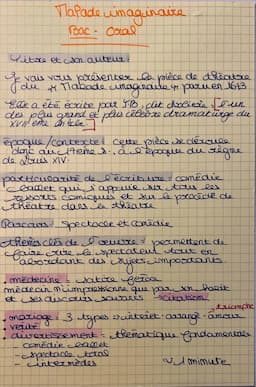 Malade imaginaire
Bac - Oral
Titre et son auteur:
Je vais vous présenter la pièce de théâtre
du "Malade imaginaire" paru en 1673
Elle a été écrite par JB, dit Molière, l'un
des plus grand et plus célèbre dramaturge du
XVIIème siècle
époque/contexte: cette pièce se déroule
donc au 17ème s. à l'époque du règne
de Louis XIV
particularité de l'écriture: comédie
ballet qui s'appuie sur tous les
ressorts comiques et sur le procédé de
théâtre dans le théâtre
Parcours: Spectacle et comédie
thèmes clés de l'oeuvre: permettent de
faire rire le spectateur tout en
abordant des sujets importants
médecine: satire
médecin n'impressionne que par son habit
et ses discours savants citation
triomphe
mariage: 3 types intérêt-arrangé-amour
vérité
divertissement: thématique fondamentale
comédie ballet
- spectacle total
- intermèdes
~1 minute